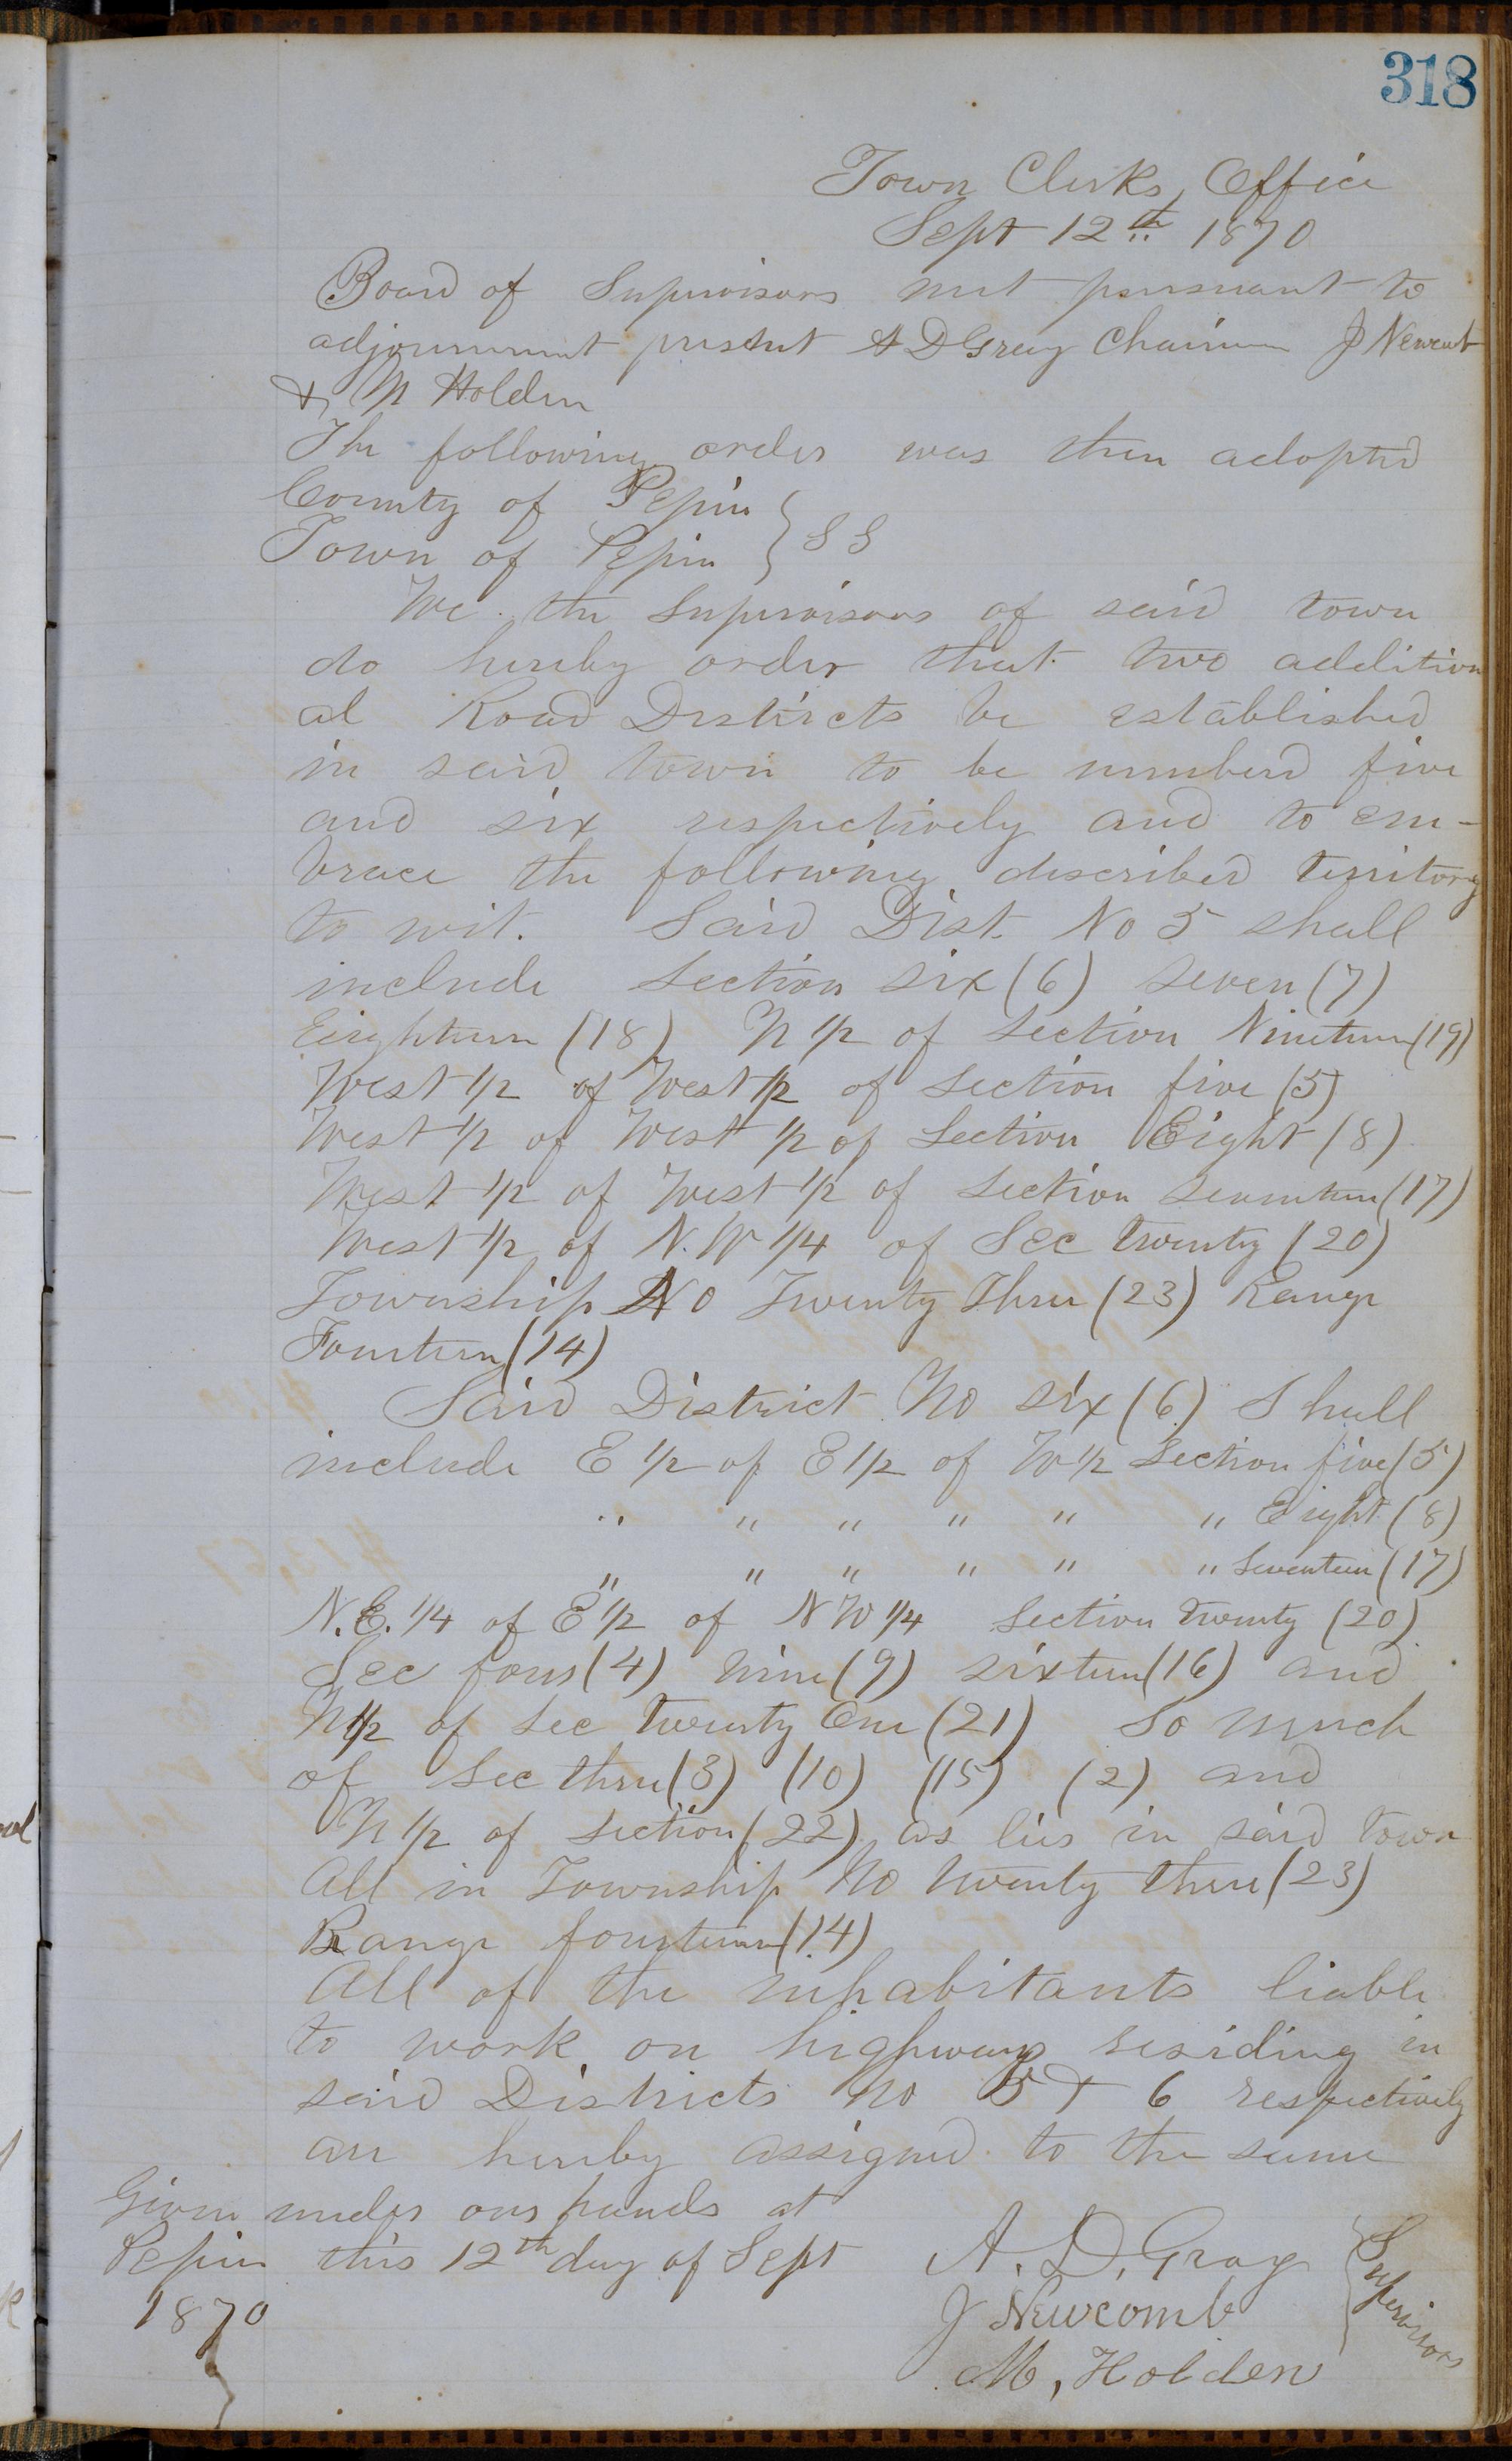 318
Town Clerks Office
Sept 12th 1870
Board of Supervisors met pursuant to
adjournment present A D Gray Chairman J Newcomb
& M Holden
The following order was then adopted
County of Pepin } S S
Town of Pepin
We the Supervisors of said town
do hereby order that two addition
al Road Districts be established
in said town to be numberd five
and six respectively and to em-
brace the following described territory
to wit. Said Dist. No 5 shall
include Section six (6) seven (7)
Eighteen (18) N 1/2 of Section Nineteen (19)
West 1/2 of West 1/2 of Section five (5)
West 1/2 of West 1/2 of Section Eight (8)
West 1/2 of West 1/2 of Section Seventeen (17)
West 1/2 of N.W 1/4 of Sec twenty (20)
Township No Twenty Three (23) Range
Fourteen (14)
Said District No six (6) Shall
include E 1/2 of E 1/2 of W 1/2 Section five (5)
" " " " " " Eight (8)
" " " " " " Seventeen (17)
N.E. 1/4 of E 1/2 of N W 1/4 Section twenty (20)
Sec four (4) nine (9) sixteen (16) and
N 1/2 of Sec twenty One (21) So much
of Sec three (3) (10) (15) (2) and
N 1/2 of Section (22) as lies in said town
All in Township No twenty three (23)
Range fourteen (14)
All of the inhabitants liable
to work on highways residing in
said Districts No 5 & 6 respectively
are hereby assigned to the same
Given under our hands at
Pepin this 12th day of Sept
1870
A. D. Gray
J Newcomb
M, Holden
} Supervisors